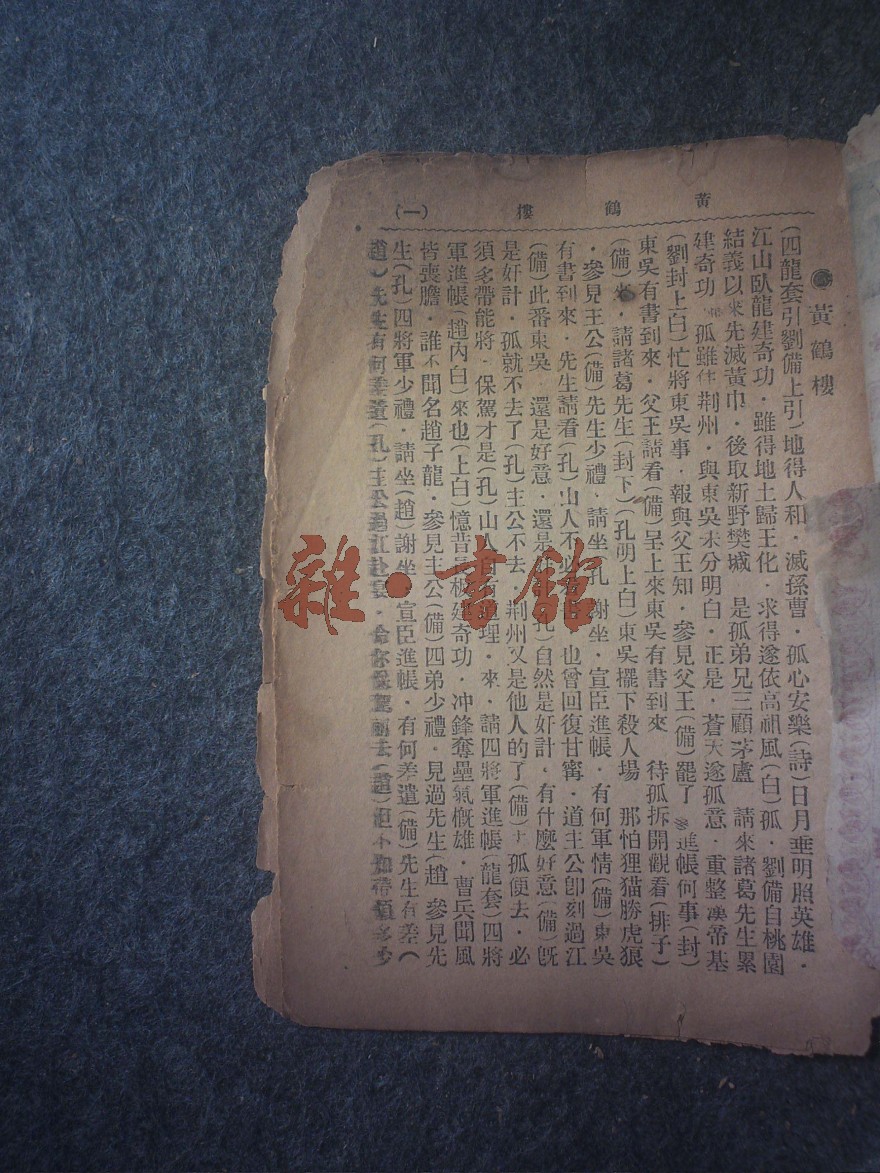 黃鶴樓 (一)
黃鶴樓
(四龍套引劉備上引)地得人和．滅孫曹．孤心安樂(詩)日月垂明照英雄．
江山臥龍建奇功．雖得地土歸王化．求得遂依高祖風(白)孤．劉備自桃園
結義以來先滅黃巾．後取新野樊城 是孤弟兄三顧茅廬 請來諸葛先生累
建奇功 孤雖 荆州．與東吳未分明白．正是．蒼天遂孤意．重整漢帝基
(劉封上白)忙將東吳事．報與父王知．參見父王(備)罷了 進帳何事(封)
東吳有書到來．父王請看(備)呈上來東吳有書到來 待孤拆開觀看(排子)
(備)來．請諸葛先生(封下)(孔明上白)東吳擺下殺人場 那怕狸猫勝虎狼
．參見王公(備)先生少禮．請坐孔 謝坐．宣臣進帳．有何軍情(備)東吳
有書到來．先生請看(孔)山人不必 也曾回復甘寧．道主公卽刻過江
(備)此番東吳 還是好意．還是 孔)自然是奸計．有什麽好意(備)旣
是奸計．孤就不去了(孔)主公不去．荆州又是他人的了(備) 孤便去．必
須多帶能將．保駕才是(孔)山人 理．來．請四將軍進帳(龍套)四將
軍進帳(趙內白)來也(上白)憶昔長板建奇功．冲鋒奪壘氣慨雄．曹兵聞風
皆喪膽．誰不聞名趙子龍．參見主公(備)四弟少禮．見過先生(趙 參見先
生(孔)四將軍少禮．請坐(趙)謝坐 宣臣進帳．有何差遣(備)先生有差(
趙)先生有何差遣(孔)主公過江赴宴．命你保駕前去(趙) 不知帶領多少
雜·書館